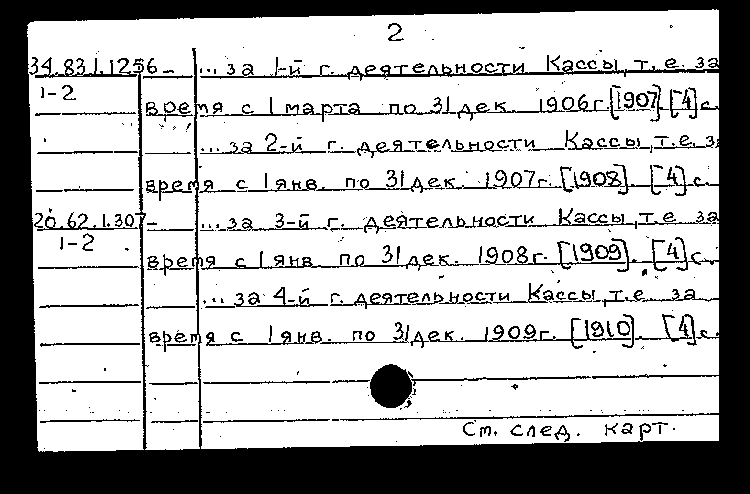 2
34.83.1.1256 – ...за 1-й г. деятельности Кассы, т. е. за
1-2
время с 1 марта по 31 дек. 1906 г. [1907]. [4] с.
...за 2-й г. деятельности Кассы, т.е. з
время с 1 янв. по 31 дек. 1907 г. [1908]. [4] с.
20.62.1.307 – ...за 3-й г. деятельности Кассы, т.е за
1-2
время с 1 янв по 31 дек. 1908 г. [1909]. [4] с.
...за 4-й г. деятельности Кассы, т.е. за
время с 1 янв. по 31 дек. 1909 г. [1910]. [4] с.
См. след. карт.